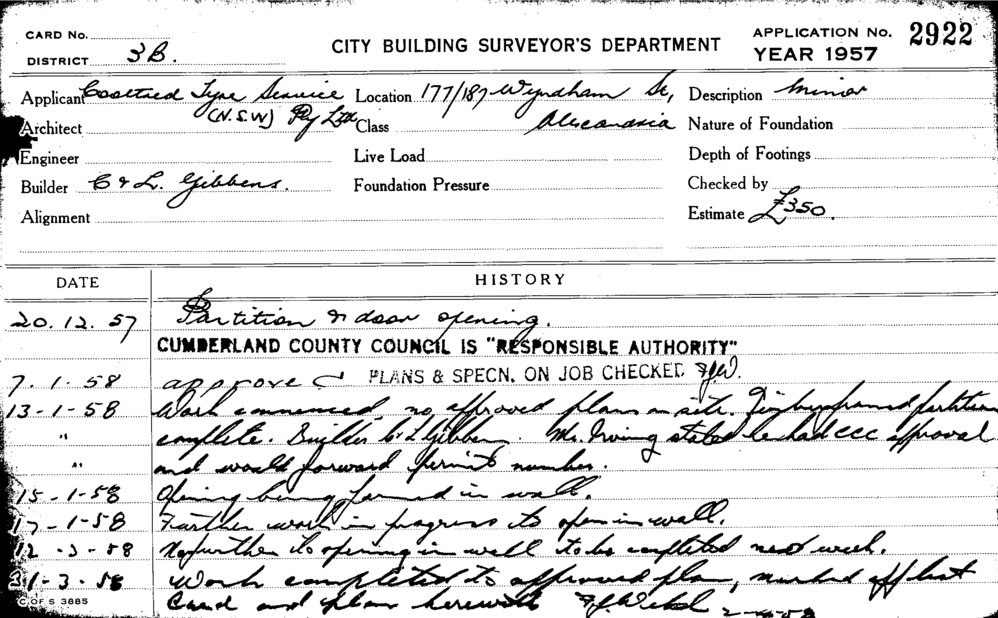 CARD No.
DISTRICT 3B.
CITY BUILDING SURVEYOR'S DEPARTMENT
APPLICATION No. 2922
YEAR 1957
Applicant Tyre Service Location 177/187 Wyndham St, Description Minor
(N.S.W) Pty Ltd Alexandria
Architect Class Nature of Foundation
Engineer Live Load Depth of Footings
Builder C & L. Gibbens. Foundation Pressure Checked by
Alignment Estimate £350.
DATE HISTORY
20.12.57 Partition & door opening.
CUMBERLAND COUNTY COUNCIL IS "RESPONSIBLE AUTHORITY"
7.1.58 approved PLANS & SPECN. ON JOB CHECKED FJW.
13-1-58 Work commenced, no approved plans on site. Timber framed partition
" complete. Builder C & L Gibbens. Mr. Irving stated he had CCC approval
" and would forward permit number.
15-1-58 Opening being formed in wall.
17-1-58 Further work in progress to open in wall.
12-3-58 No further to opening in wall to be completed next week.
31-3-58 Work completed to approved plan, marked off list
Card and plan herewith FJWebb 2-4-58
C OF S 3885